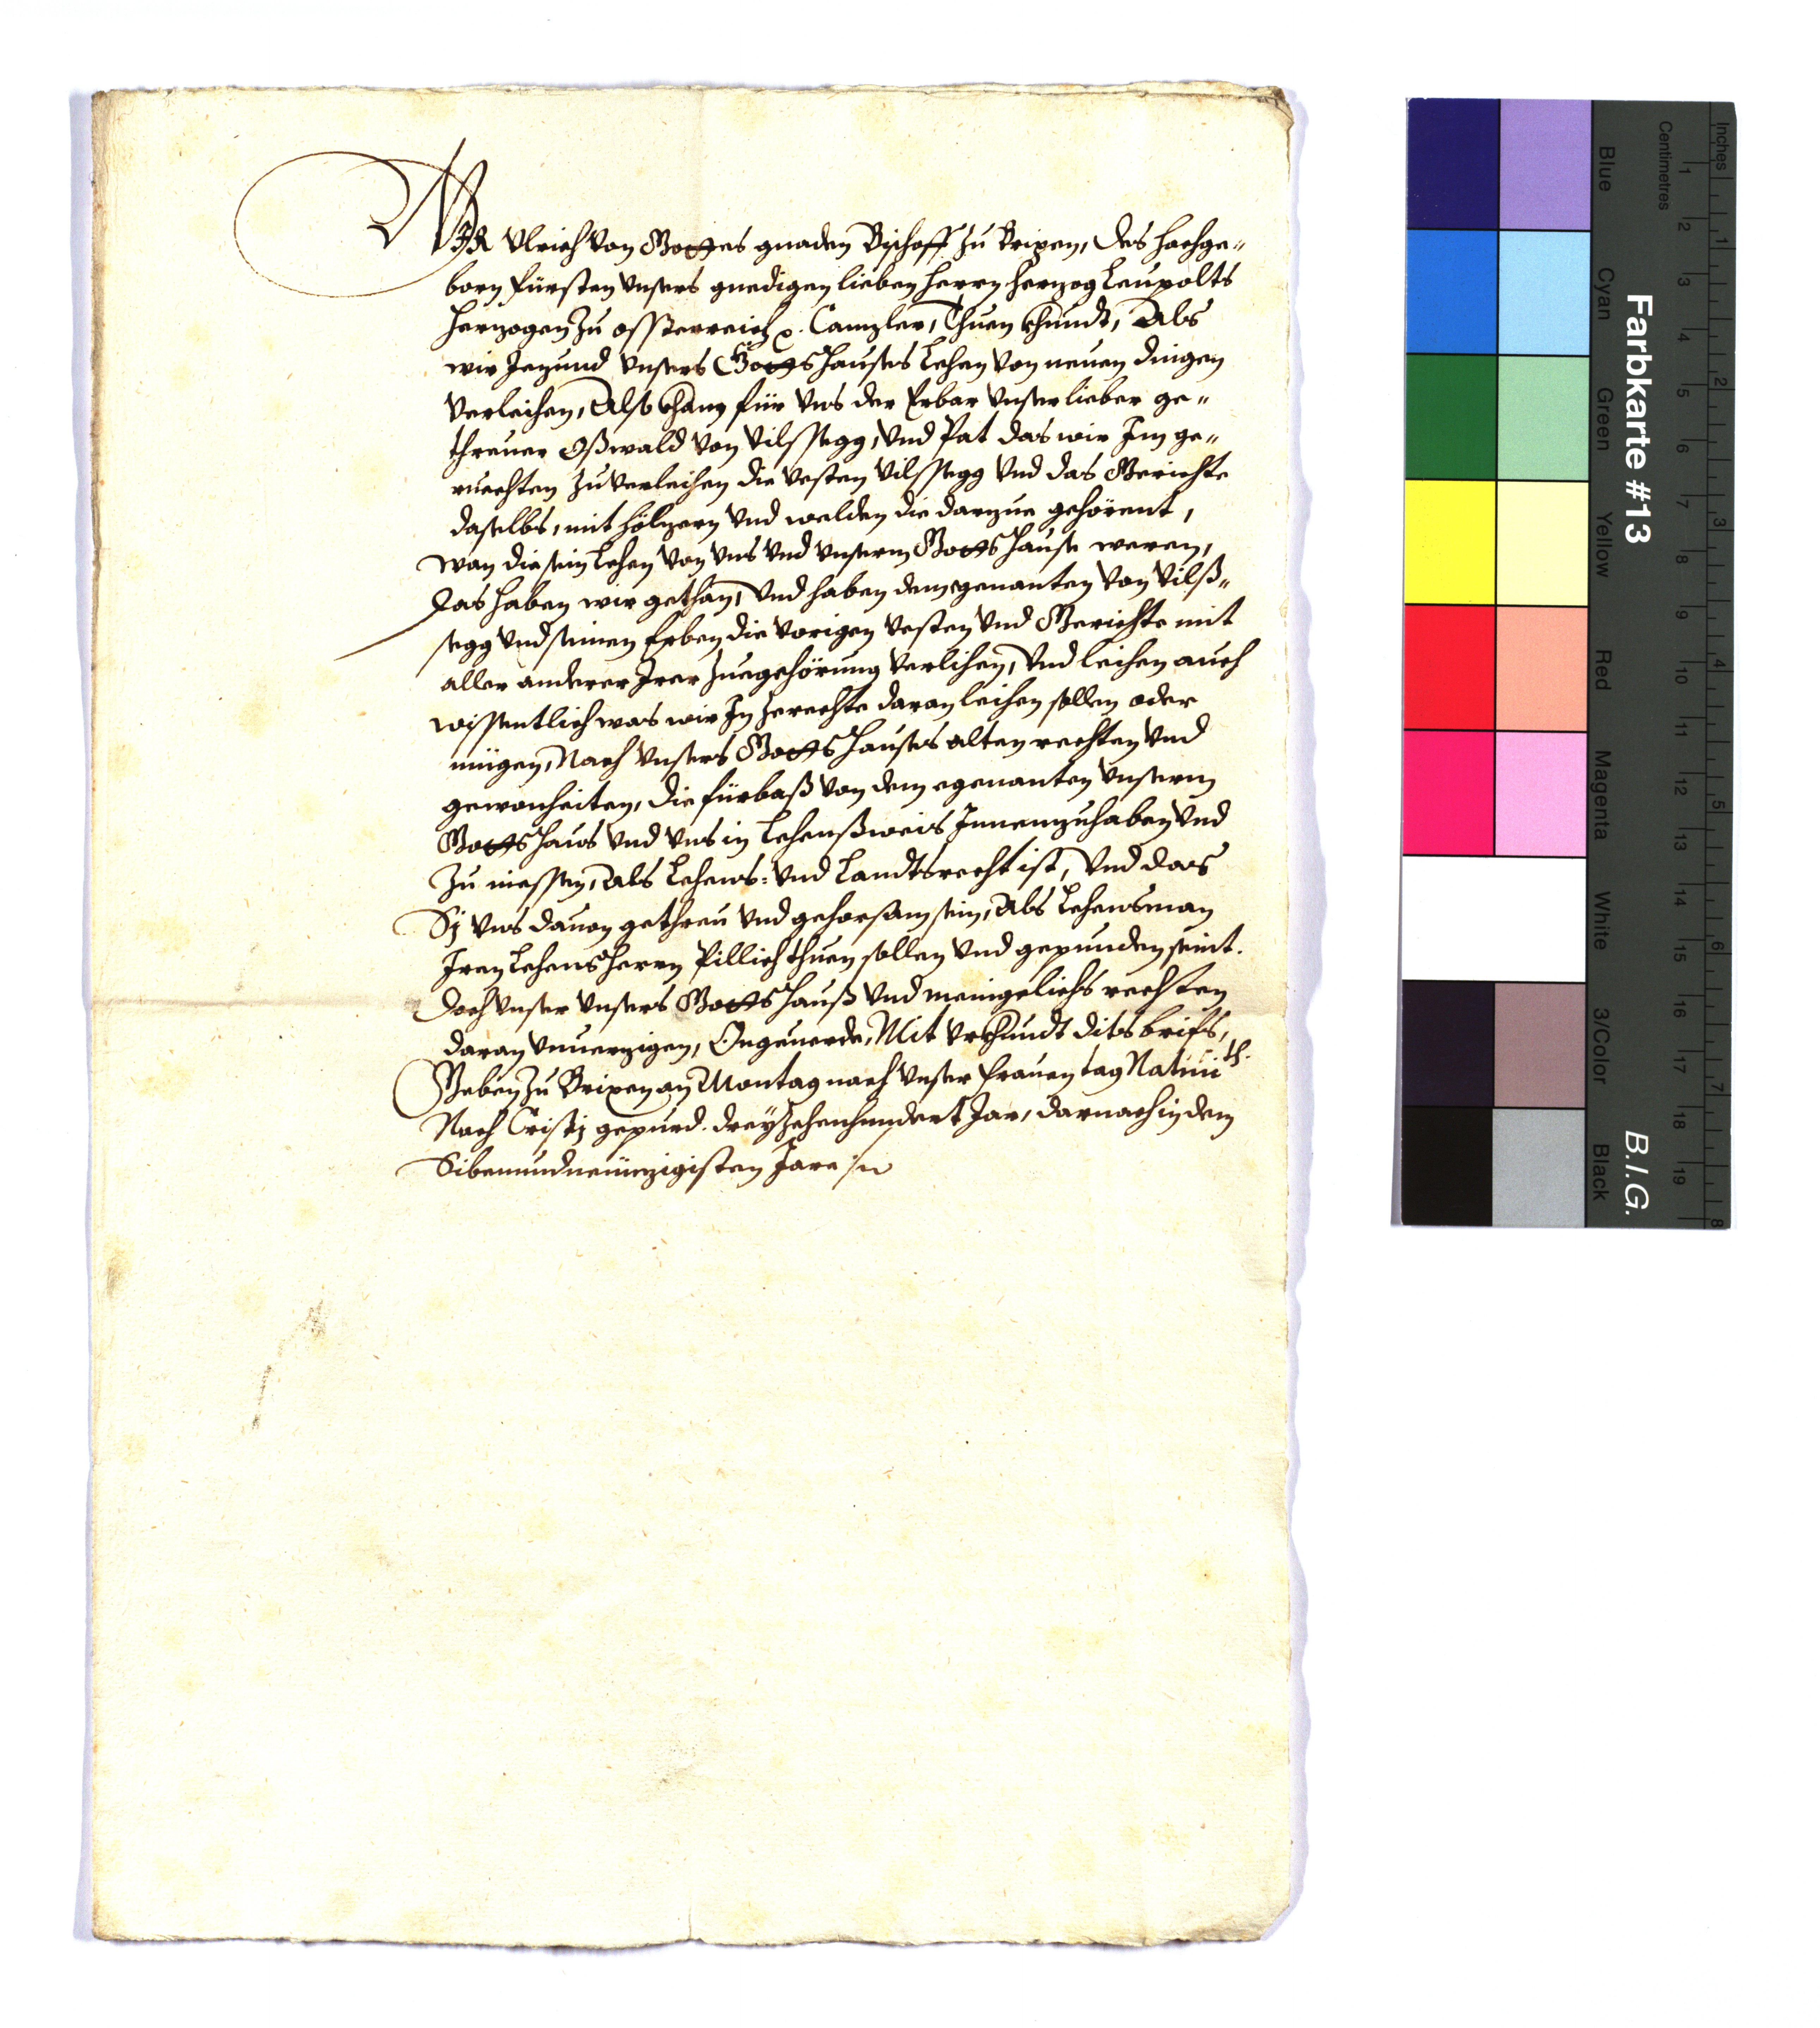 WIR Vlrich von Gottes gnaden Bischoff zu Brixen, des hochge-
born fürsten vnsers gnedigen lieben herrn herzog Leupolts
herzogen zu osterreich x. Canzler, Thuen khundt, Als
wir Jezund vnsers Gottshauses Lehen von neuen dingen
verleihen, Also kham für vns der Erbar vnser lieber ge-
threuer Oßwald von Vilssegg, vnd Pat das wir Im ge-
ruechten zu verleihen die vesten Vilssegg vnd das Gerichte
daselbs, mit hölzern vnd welden die darzue gehörent,
wan die sein Lehen von vns vnd vnserm Gottshause weren,
das haben wir gethan, vnd haben dem egenanten von Vilß-
segg vnd seinen Erben die vorigen vesten vnd Gerichte mit
aller anderer Irer zuegehörung verlihen, vnd leihen auch
wissentlich was wir In zerechte daran leihen sollen oder
mügen, Nach vnsers Gottshauses alten rechten vnd
gewonheiten, die fürbaß von dem egenanten vnserm
Gottshaus vnd vns in Lehenßweis Innenzuhaben vnd
zu niessen, Als Lehens- vnd Landtsrecht ist, vnd das
Sy vns dauon gethreu vnd gehorsam sein, Als Lehensman
Iren Lehensherrn Pillich thuen sollen vnd gepunden seint.
Doch vnser vnsers Gottshauß vnd meingelichs rechten
daran vnuerzigen, Ongeuerde, Mit vrkhundt dits briefs,
Geben zu Brixen an Montag nach vnser frauen tag Natiuith.
Nach Cristj gepurd. dreyzehenhundert Jar, darnach in dem
Sibenundneünzigisten Jare
Farbkarte #13
B.I.G.
Inches
Centimetres
1 2 3 4 5 6 7 8 9 10 11 12 13 14 15 16 17 18 19
1 2 3 4 5 6 7 8
Blue
Cyan
Green
Yellow
Red
Magenta
White
3/Color
Black